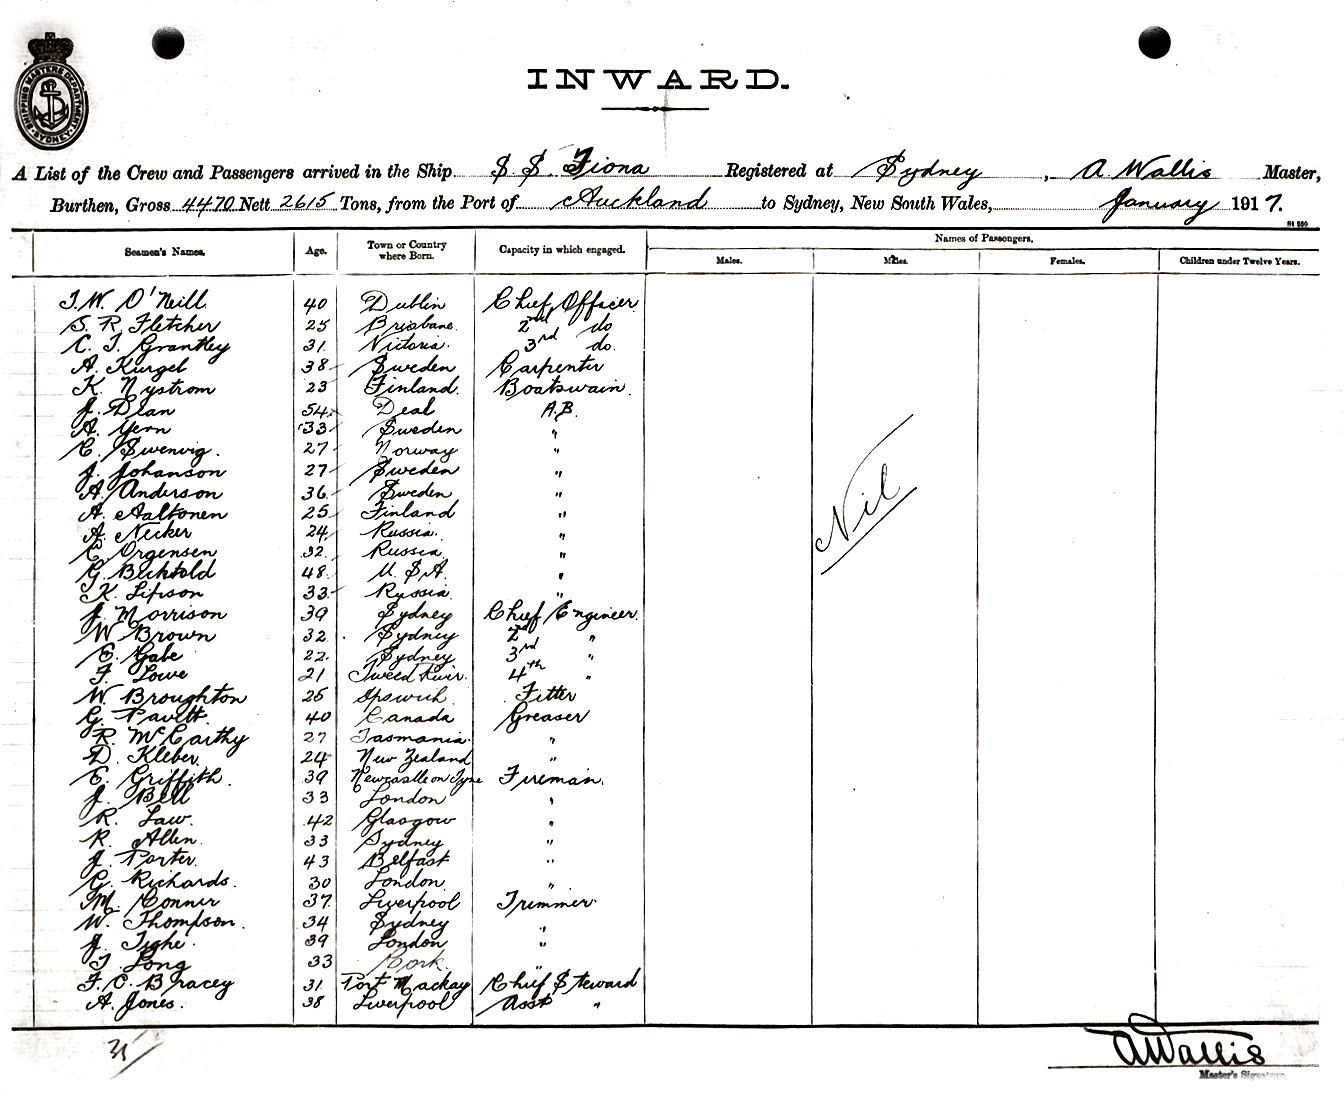 SHIPPING MASTERS DEPARTMENT SYDNEY
INWARD.
A List of the Crew and Passengers arrived in the Ship S.S. Fiona Registered at Sydney, A. Wallis Master,
Burthen, Gross 4470 Nett 2615 Tons, from the Port of Auckland to Sydney, New South Wales, January 1917.
Seamen's Names. Age. Town or Country where Born. Capacity in which engaged. Names of Passengers.
Males. Males. Females. Children under Twelve Years.
J. W. O'Neill 40 Dublin Chief Officer
S. R. Fletcher 25 Brisbane 2nd do
C. J. Grantley 31 Victoria 3rd do.
A. Kurgel 38 Sweden Carpenter
K. Nystrom 23 Finland Boatswain
J. Dean 54 Deal A.B.
A. Yern 33 Sweden "
C. Swenvig 27 Norway "
J. Johanson 27 Sweden "
A. Anderson 36 Sweden "
A. Aaltonen 25 Finland "
A. Necker 24 Russia "
C. Orgensen 32 Russia "
G. Bechtold 48 U.S.A. "
K. Lipson 33 Russia "
J. Morrison 39 Sydney Chief Engineer
W Brown 32 Sydney 2nd "
E. Gabe 22 Sydney 3rd "
F. Lowe 21 Tweed River 4th "
W. Broughton 25 Ipswich Fitter
G. Pavett 40 Canada Greaser
R. McCarthy 27 Tasmania "
D. Kleber 24 New Zealand "
E. Griffith 39 Newcastle on Tyne Fireman
J. Bell 33 London "
R. Law 42 Glasgow "
R. Allen 33 Sydney "
J. Porter 43 Belfast "
G. Richards 30 London "
M. Conner 37 Liverpool Trimmer
W. Thompson 34 Sydney "
J. Tighe 39 London "
T. Long 33 Cork "
F. C. Bracey 31 Port Mackay Chief Steward
A. Jones 38 Liverpool Asst "
Nil
A Wallis
Master's Signature.